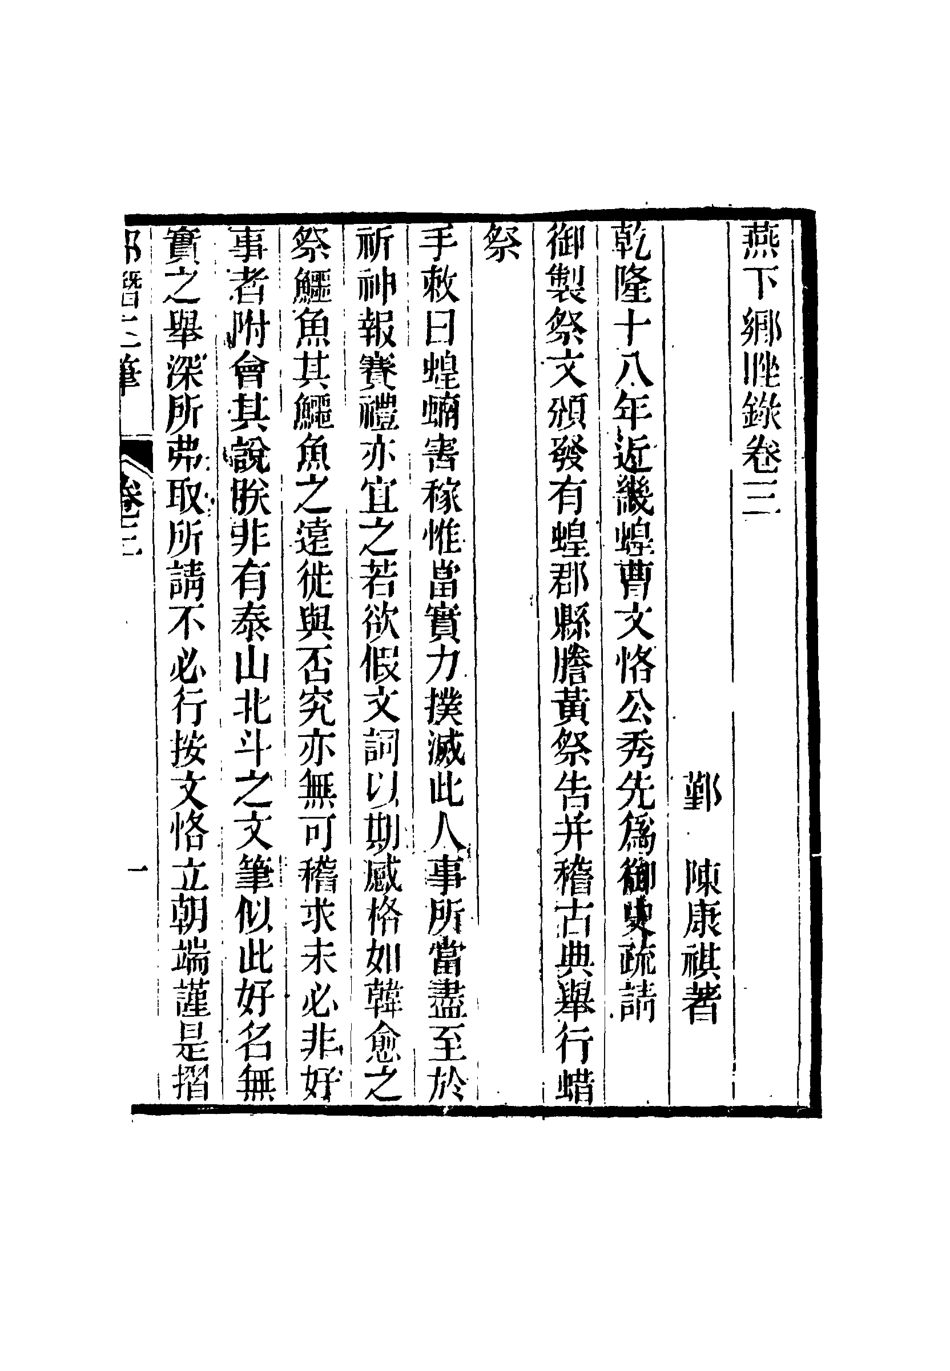 燕下鄉脞錄卷三
鄞　陳康祺著
乾隆十八年近畿蝗曹文恪公秀先爲御史疏請
御製祭文頒發有蝗郡縣謄黃祭告并稽古典舉行蜡
祭
手敕曰蝗蝻害稼惟當實力撲滅此人事所當盡至於
祈神報賽禮亦宜之若欲假文詞以期感格如韓愈之
祭鱷魚其鱷魚之遠徙與否究亦無可稽求未必非好
事者附會其說朕非有泰山北斗之文筆似此好名無
實之舉深所弗取所請不必行按文恪立朝端謹是摺
郎潛二筆　卷三　一